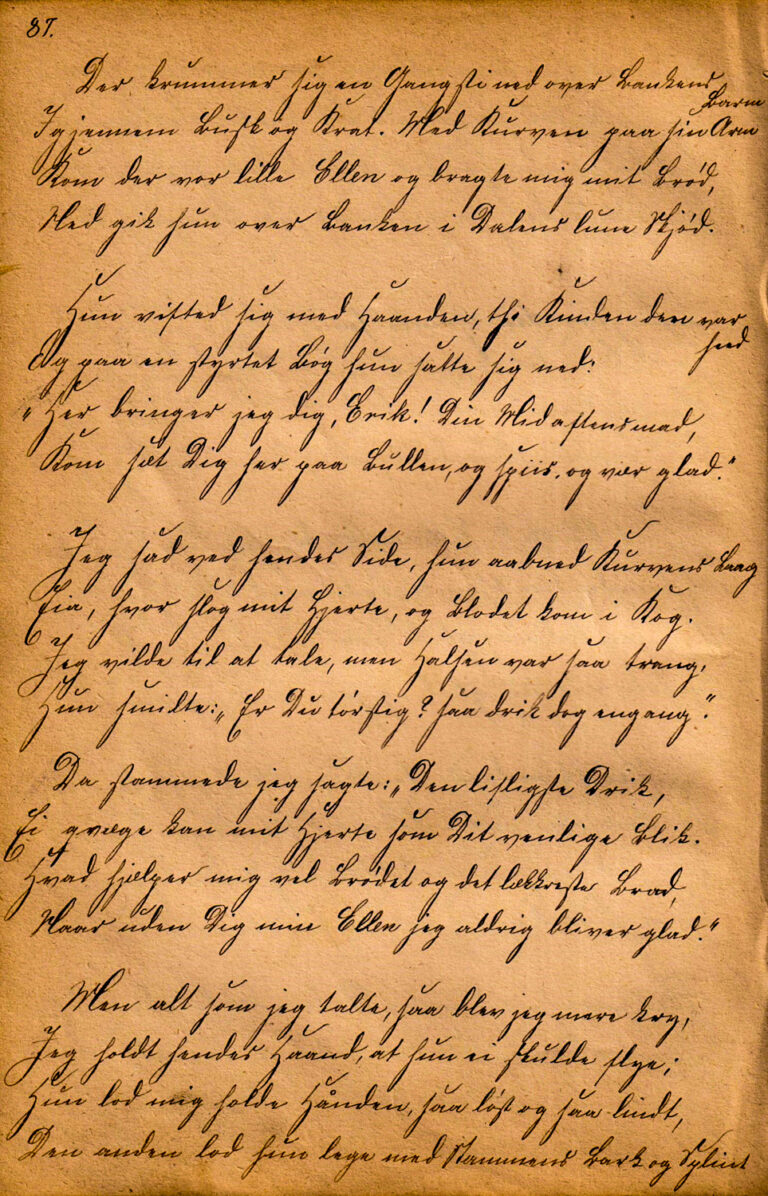 87.
Der krummer sig en Gangsti ned over Bankens
Barm
Igjennem Busk og Krat. Med Kurven paa sin Arm
Kom der vor lille Ellen og bragte mig mit Brød,
Ned gik hun over Banken i Dalens lune Skjød.
Hun vifted sig med Haanden, thi Kinden den var
heed
Og paa en styrtet Bøg hun satte sig ned:
"Her bringer jeg dig, Erik! Din Midaftensmad,
Kom sæt Dig her paa Bullen, og spiis, og vær glad."
Jeg sad ved hendes Side, hun aabned Kurvens Laag
Eia, hvor slog mit Hjerte, og Blodet kom i Kog.
Jeg vilde til at tale, men Halsen var saa trang,
Hun smilte: „Er Du tørstig? saa drik dog engang".
Da stammede jeg sagte: „Den lifligste Drik,
Ei qvæge kan mit Hjerte som Dit venlige Blik.
Hvad hjelper mig vel Brødet og det lækkreste Brad,
Naar uden Dig min Ellen jeg aldrig bliver glad."
Men alt som jeg talte, saa blev jeg mere kry,
Jeg holdt hendes Haand, at hun ei skulde flye;
Hun lod mig holde Hånden, saa løst og saa lindt,
Den anden lod hun lege med Stammens Bark og Splint